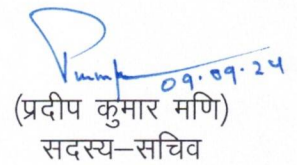 09.09.24
(प्रदीप कुमार मणि)
सदस्य–सचिव